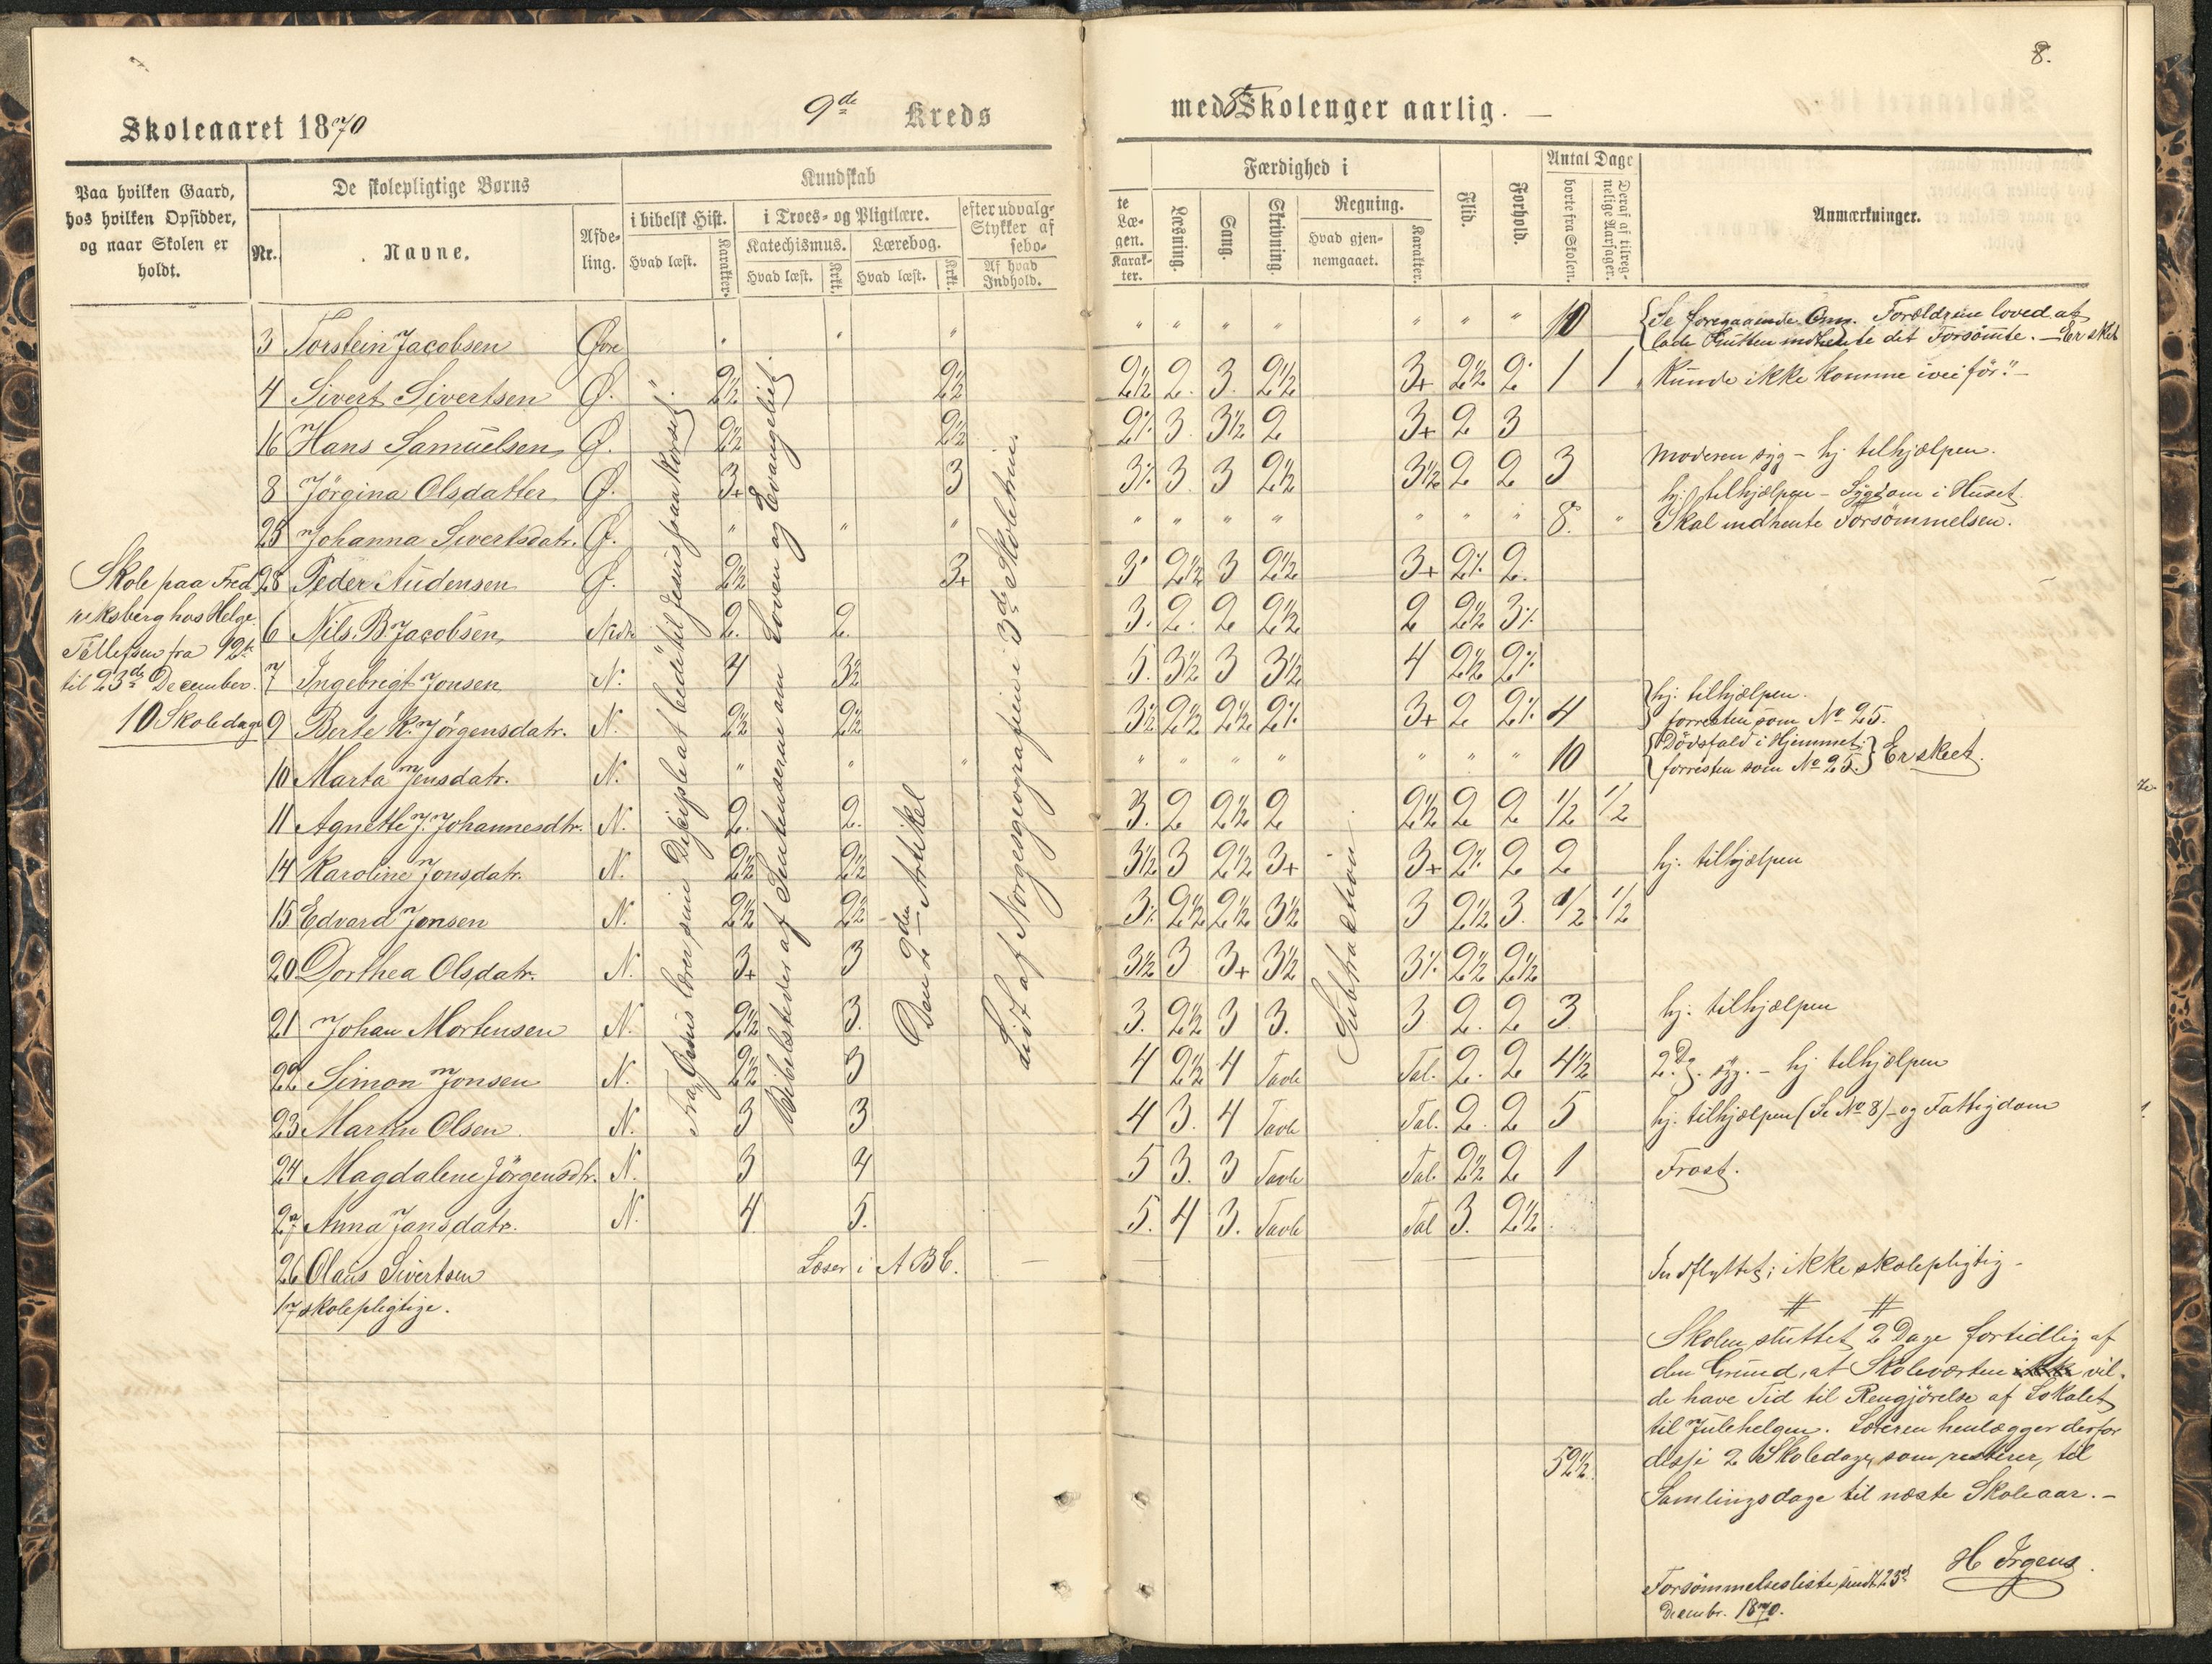 8.
Skoleaaret 1870
9de Kreds
med 5 Skolenger aarlig.
Paa hvilken Gaard,
hos hvilken Opsidder,
og naar Skolen er
holdt.
De skolepligtige Børns
Nr.
Navne.
Afde-
ling.
Kundskab
i bibelsk Hist.
Hvad læst.
Karakter.
i Troes- og Pligtlære.
Katechismus.
Hvad læst.
Krkt.
Lærebog.
Hvad læst.
Krkt.
efter udvalg-
Stykker af
sebo-
Af hvad
Indhold.
te
Læ-
gen.
Karak-
ter.
Færdighed i
Læsning.
Sang.
Skrivning.
Regning.
Hvad gjen-
nemgaaet.
Karakter.
Flid.
Forhold.
Antal Dage
borte fra Skolen.
Deraf af tilreg-
nelige Aarsager.
Anmærkninger.
Skole paa Fred
reksberg hos Helge
Tellefsen fra 12te
til 23de December.
10 Skoledage
3 Torstein Jacobsen Øvre " " " " " " " " " " 10 Se foregaaende Anm. Forældrene loved at
lade Gutten indhente det Forsömte. — Er skeet
4 Sivert Sivertsen Ø. " 2½ 2½ 2½ 2. 3. 2½ 3+ 2½ 2 1 1 Kunde ikke komme ivei för." —
16 Hans Samuelsen Ø. 2½ 2½ 2⁒ 3. 3½ 2 3+ 2 3
8 Jörgina Olsdatter Ø. 3+ 3 3⁒ 3. 3 2½ 3½ 2 2 3 Moderen syg – hj. tilhjælpen.
hj. tilhjælpen – Sygdom i Huset
25 Johanna Sivertsdatr. Ø. " " " " " " " " " " 8. " Skal indhente Forsömmelsen.
28 Peder Audensen Ø. 2½ 3+ 3 2½ 3 2½ 3+ 2⁒ 2.
6 Nils B. Jacobsen Nedre 2. 2 3. 2. 2 2½ 2 2½ 3⁒
7 Ingebrigt Jonsen N. 4 3½ 5. 3½ 3 3½ 4 2½ 2⁒
9 Berte K. Jörgensdatr. N. 2½ 2½ 3½ 2½ 2½ 2⁒ 3+ 2 2⁒ 4 hj. tilhjælpen.
forresten som No 25.
10 Marta Jensdatr. N. " " " " " " " " " " 10 Dödsfald i Hjemmet;
forresten som No 25. Er skeet.
11 Agnethe J. Johannesdtr. N. 2. 2. 3. 2 2½ 2 2½ 2 2 1/2 1/2
14 Karoline Jonsdatr. N. 2½ 2½ 3½ 3 2½ 3+ 3+ 2⁒ 2 2 hj. tilhjælpen
15 Edvard Jonsen N. 2½ 2½ 3⁒ 2½ 2½ 3½ 3 2½ 3. 1/2 1/2
20 Dorthea Olsdatr. N. 3+ 3 3½ 3 3+ 3½ 3⁒ 2½ 2½
21 Johan Mortensen N. 2½ 3. 3. 2½ 3 3. 3 2. 2 3 hj. tilhjælpen
22 Simon Jonsen N. 2½ 3 4 2½ 4 Tavle Tal. 2. 2 4½ 2 Dg. syg. – hj tilhjælpen
23 Martin Olsen N. 3 3 4 3. 4 Tavle Tal. 2. 2 5 hj. tilhjælpen (Se No 8) – og Fattigdom
24 Magdalene Jörgensdtr. N. 3 4 5 3. 3 Tavle Tal. 2½ 2 1 Frost.
27 Anna Jansdatr. N. 4 5. 5. 4 3. Tavle Tal 3. 2½
26 Olaus Sivertsen Læser i ABC. — Indflyttet; ikke skolepligtig –
17 skolepligtige.
Fra Jesus lærer sine Disciple at bede til Jesus paa Korset
Bibelsteder af Sentenserne om Loven og Evangeliet
Den 2den Artikel
Lidt af Norgesgeografien i 3de Skoletrin.
Subtraktion.
# #
Skolen sluttet 2 Dage fortidlig af
den Grund, at Skoleværten ikke vil-
de have Tid til Rengjörelse af Lokalet
til Julehelgen. Læreren henlægger derfor
disse 2 Skoledage, som resterer, til
Samlingsdage til næste Skoleaar. –
52½.
H Irgens.
Forsömmelsesliste sendt 23de
Decembr. 1870.